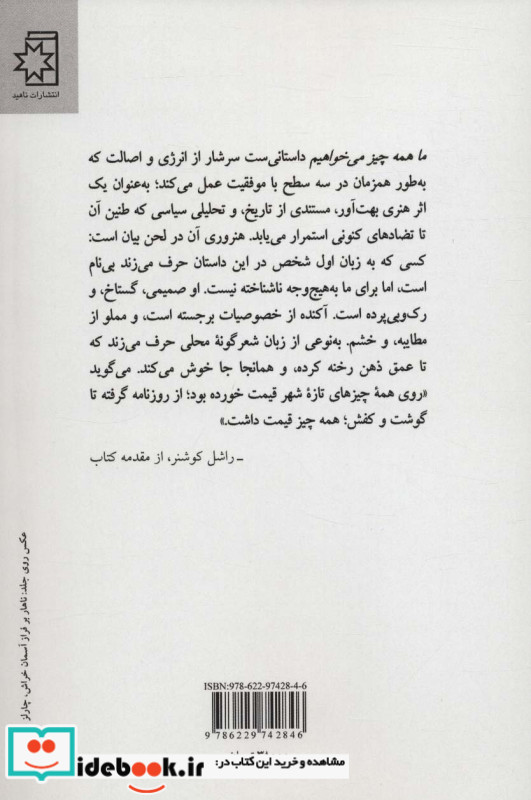 انتشارات ناهید
ما همه چیز می‌خواهیم داستانی‌ست سرشار از انرژی و اصالت که
به‌طور همزمان در سه سطح با موفقیت عمل می‌کند؛ به‌عنوان یک
اثر هنری بهت‌آور، مستندی از تاریخ، و تحلیلی سیاسی که طنین آن
تا تضادهای کنونی استمرار می‌یابد. هنروری آن در لحن بیان است:
کسی که به زبان اول شخص در این داستان حرف می‌زند بی‌نام
است، اما برای ما به‌هیچ‌وجه ناشناخته نیست. او صمیمی، گستاخ، و
رک‌وبی‌پرده است. آکنده از خصوصیات برجسته است، و مملو از
مطایبه، و خشم. به‌نوعی از زبان شعرگونهٔ محلی حرف می‌زند که
تا عمق ذهن رخنه کرده، و همانجا جا خوش می‌کند. می‌گوید
«روی همهٔ چیزهای تازهٔ شهر قیمت خورده بود؛ از روزنامه گرفته تا
گوشت و کفش؛ همه چیز قیمت داشت.»
ـ راشل کوشنر، از مقدمه کتاب
عکس روی جلد: ناهار بر فراز آسمان خراش، چارلز
ISBN:978-622-97428-4-6
9 786229 742846
مشاهده و خرید این کتاب در:
idebook.ir